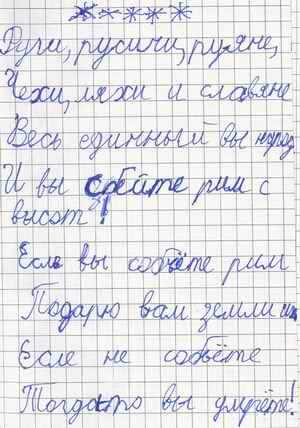 Руги, русичи, руяне,
Чехи, ляхи и славяне
Весь единный вы народ
И вы сбейте рим с
высот!
Если вы собьёте рим
Подарю вам земли их
Если не собьёте
Тогда вы умрёте!